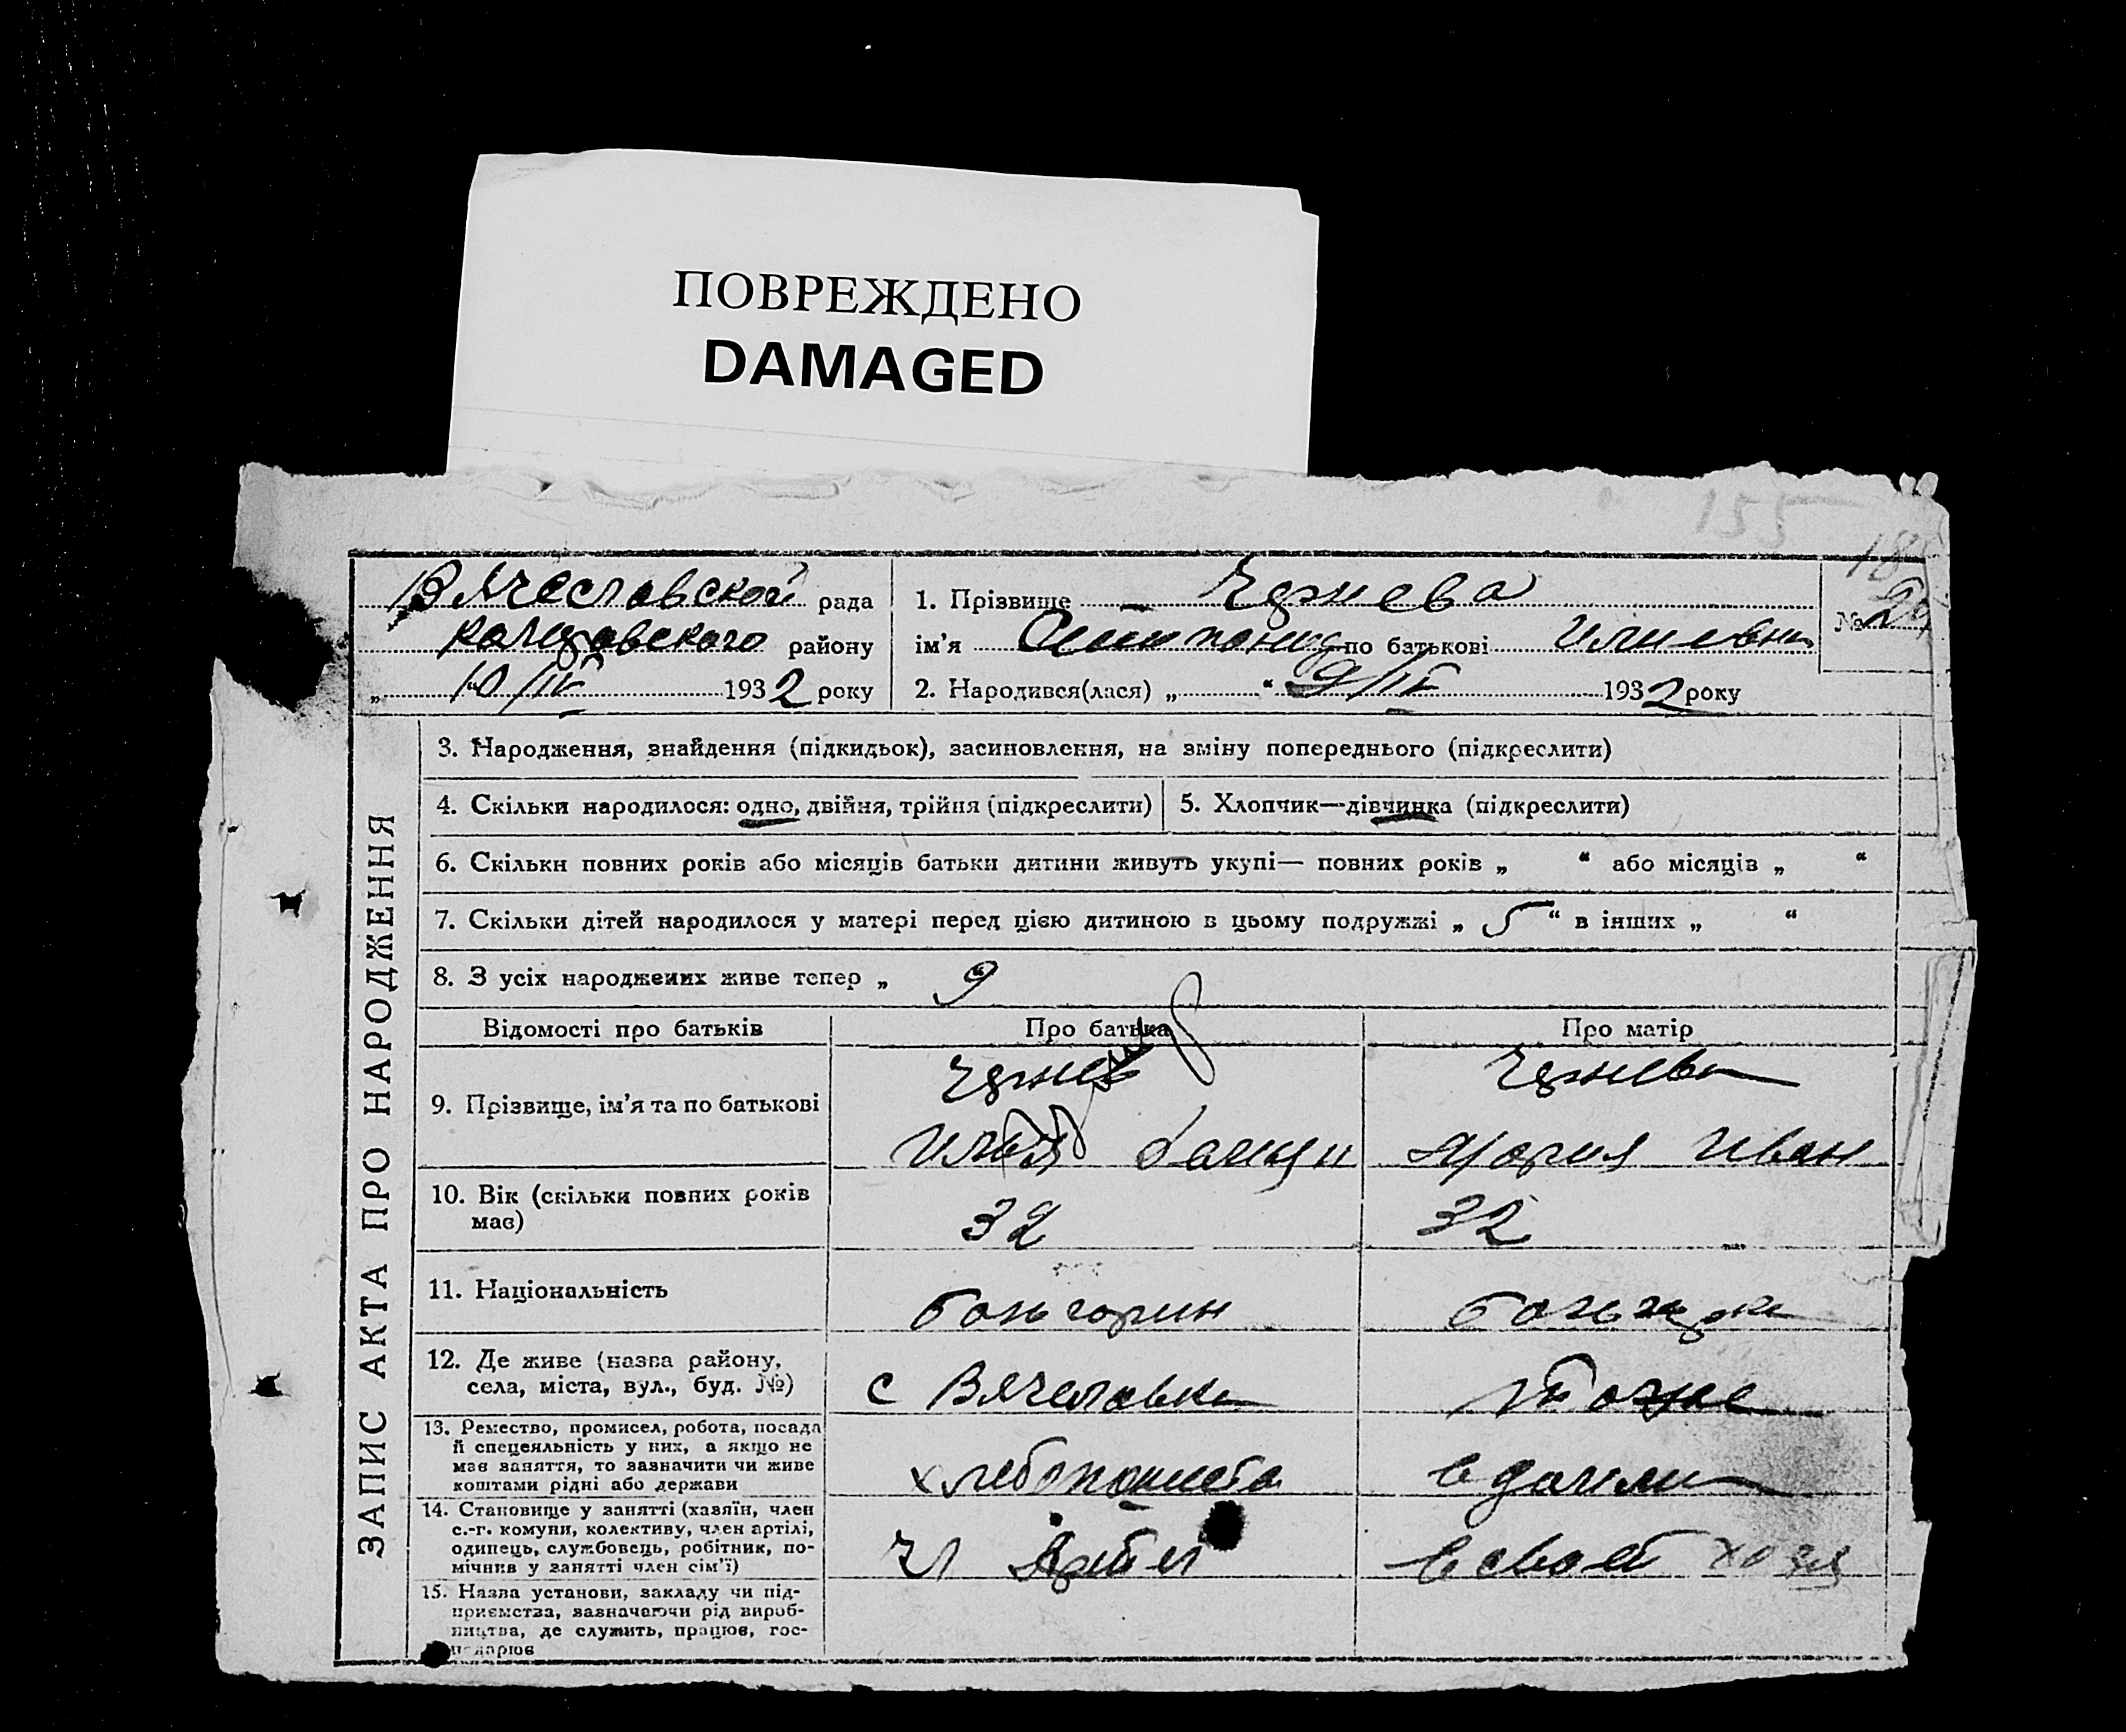 ПОВРЕЖДЕНО
DAMAGED
155
Вячеславской рада
району
„ 10/IV 1932 року
1. Прізвище
№
ім’я по батькові
2. Народився(лася) „ “ 9/IV 1932 року
ЗАПИС АКТА ПРО НАРОДЖЕННЯ
3. Народження, знайдення (підкидьок), засиновлення, на зміну попереднього (підкреслити)
4. Скільки народилося: одно, двійня, трійня (підкреслити)
5. Хлопчик—дівчинка (підкреслити)
6. Скільки повних років або місяців батьки дитини живуть укупі— повних років „ “ або місяців „ “
7. Скільки дітей народилося у матері перед цією дитиною в цьому подружжі „ 5 “ в інших „ “
8. З усіх народжених живе тепер „
Відомості про батьків
Про батька
Про матір
9. Прізвище, ім’я та по батькові
Илья
Мария Иван
10. Вік (скільки повних років
має)
32
32
11. Національність
болгорин
12. Де живе (назва району,
села, міста, вул., буд. №)
с Вячеславка
тоже
13. Ремество, промисел, робота, посада
й спецеяльність у них, а якщо не
має заняття, то зазначити чи живе
коштами рідні або держави
14. Становище у занятті (хазяїн, член
с.-г. комуни, колективу, член артілі,
одинець, службовець, робітник, по-
мічник у занятті член сім’ї)
чл
15. Назва установи, закладу чи під-
приємства, зазначаючи рід вироб-
ництва, де служить, працює, гос-
подарює